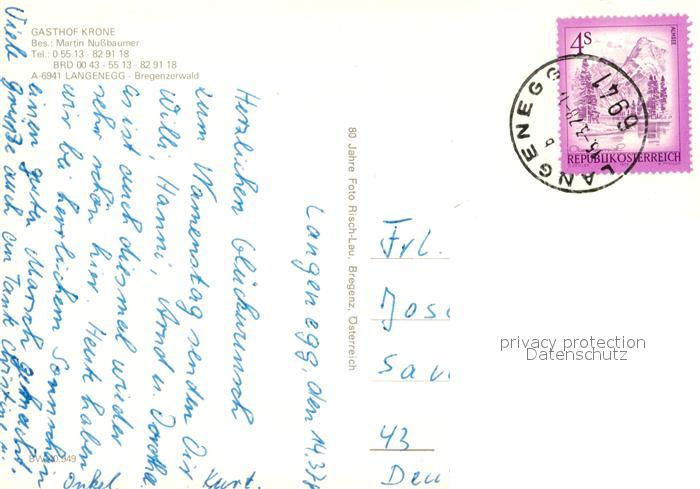 GASTHOF KRONE
Bes.: Martin Nußbaumer
Tel.: 0 55 13 - 82 91 18
BRD 00 43 - 55 13 - 82 91 18
A-6941 LANGENEGG - Bregenzerwald
Langenegg, den 14.3.79
Herzlichen Glückwunsch
zum Namenstag senden Dir
Willi, Hanni, Arnd u. Dorothea.
Es ist auch diesmal wieder
sehr schön hier. Heute haben
wir bei herrlichem Sonnenschein
einen guten Marsch gemacht.
Viele Grüße auch an Tante Christine u.
Onkel Kurt.
80 Jahre Foto Risch-Lau, Bregenz, Österreich
4S
ALMSEE
REPUBLIK ÖSTERREICH
6941
LANGENEGG
b
Frl.
43
privacy protection
Datenschutz